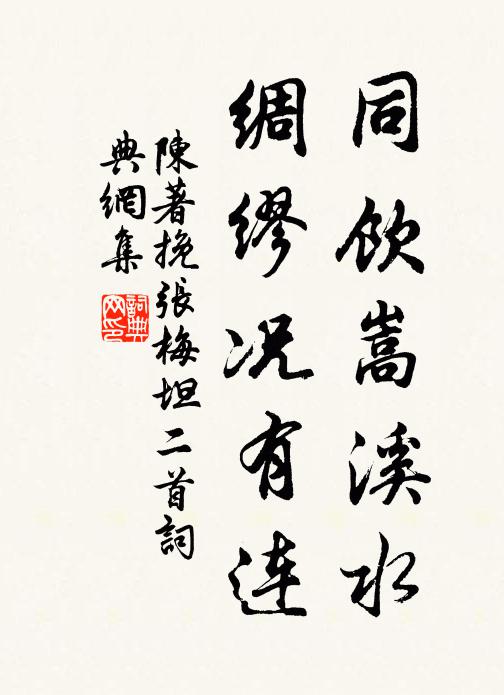 同飲嵩溪水
綢繆况有連
陳著挽張梅坦二首詞
典網集
詞典
网印